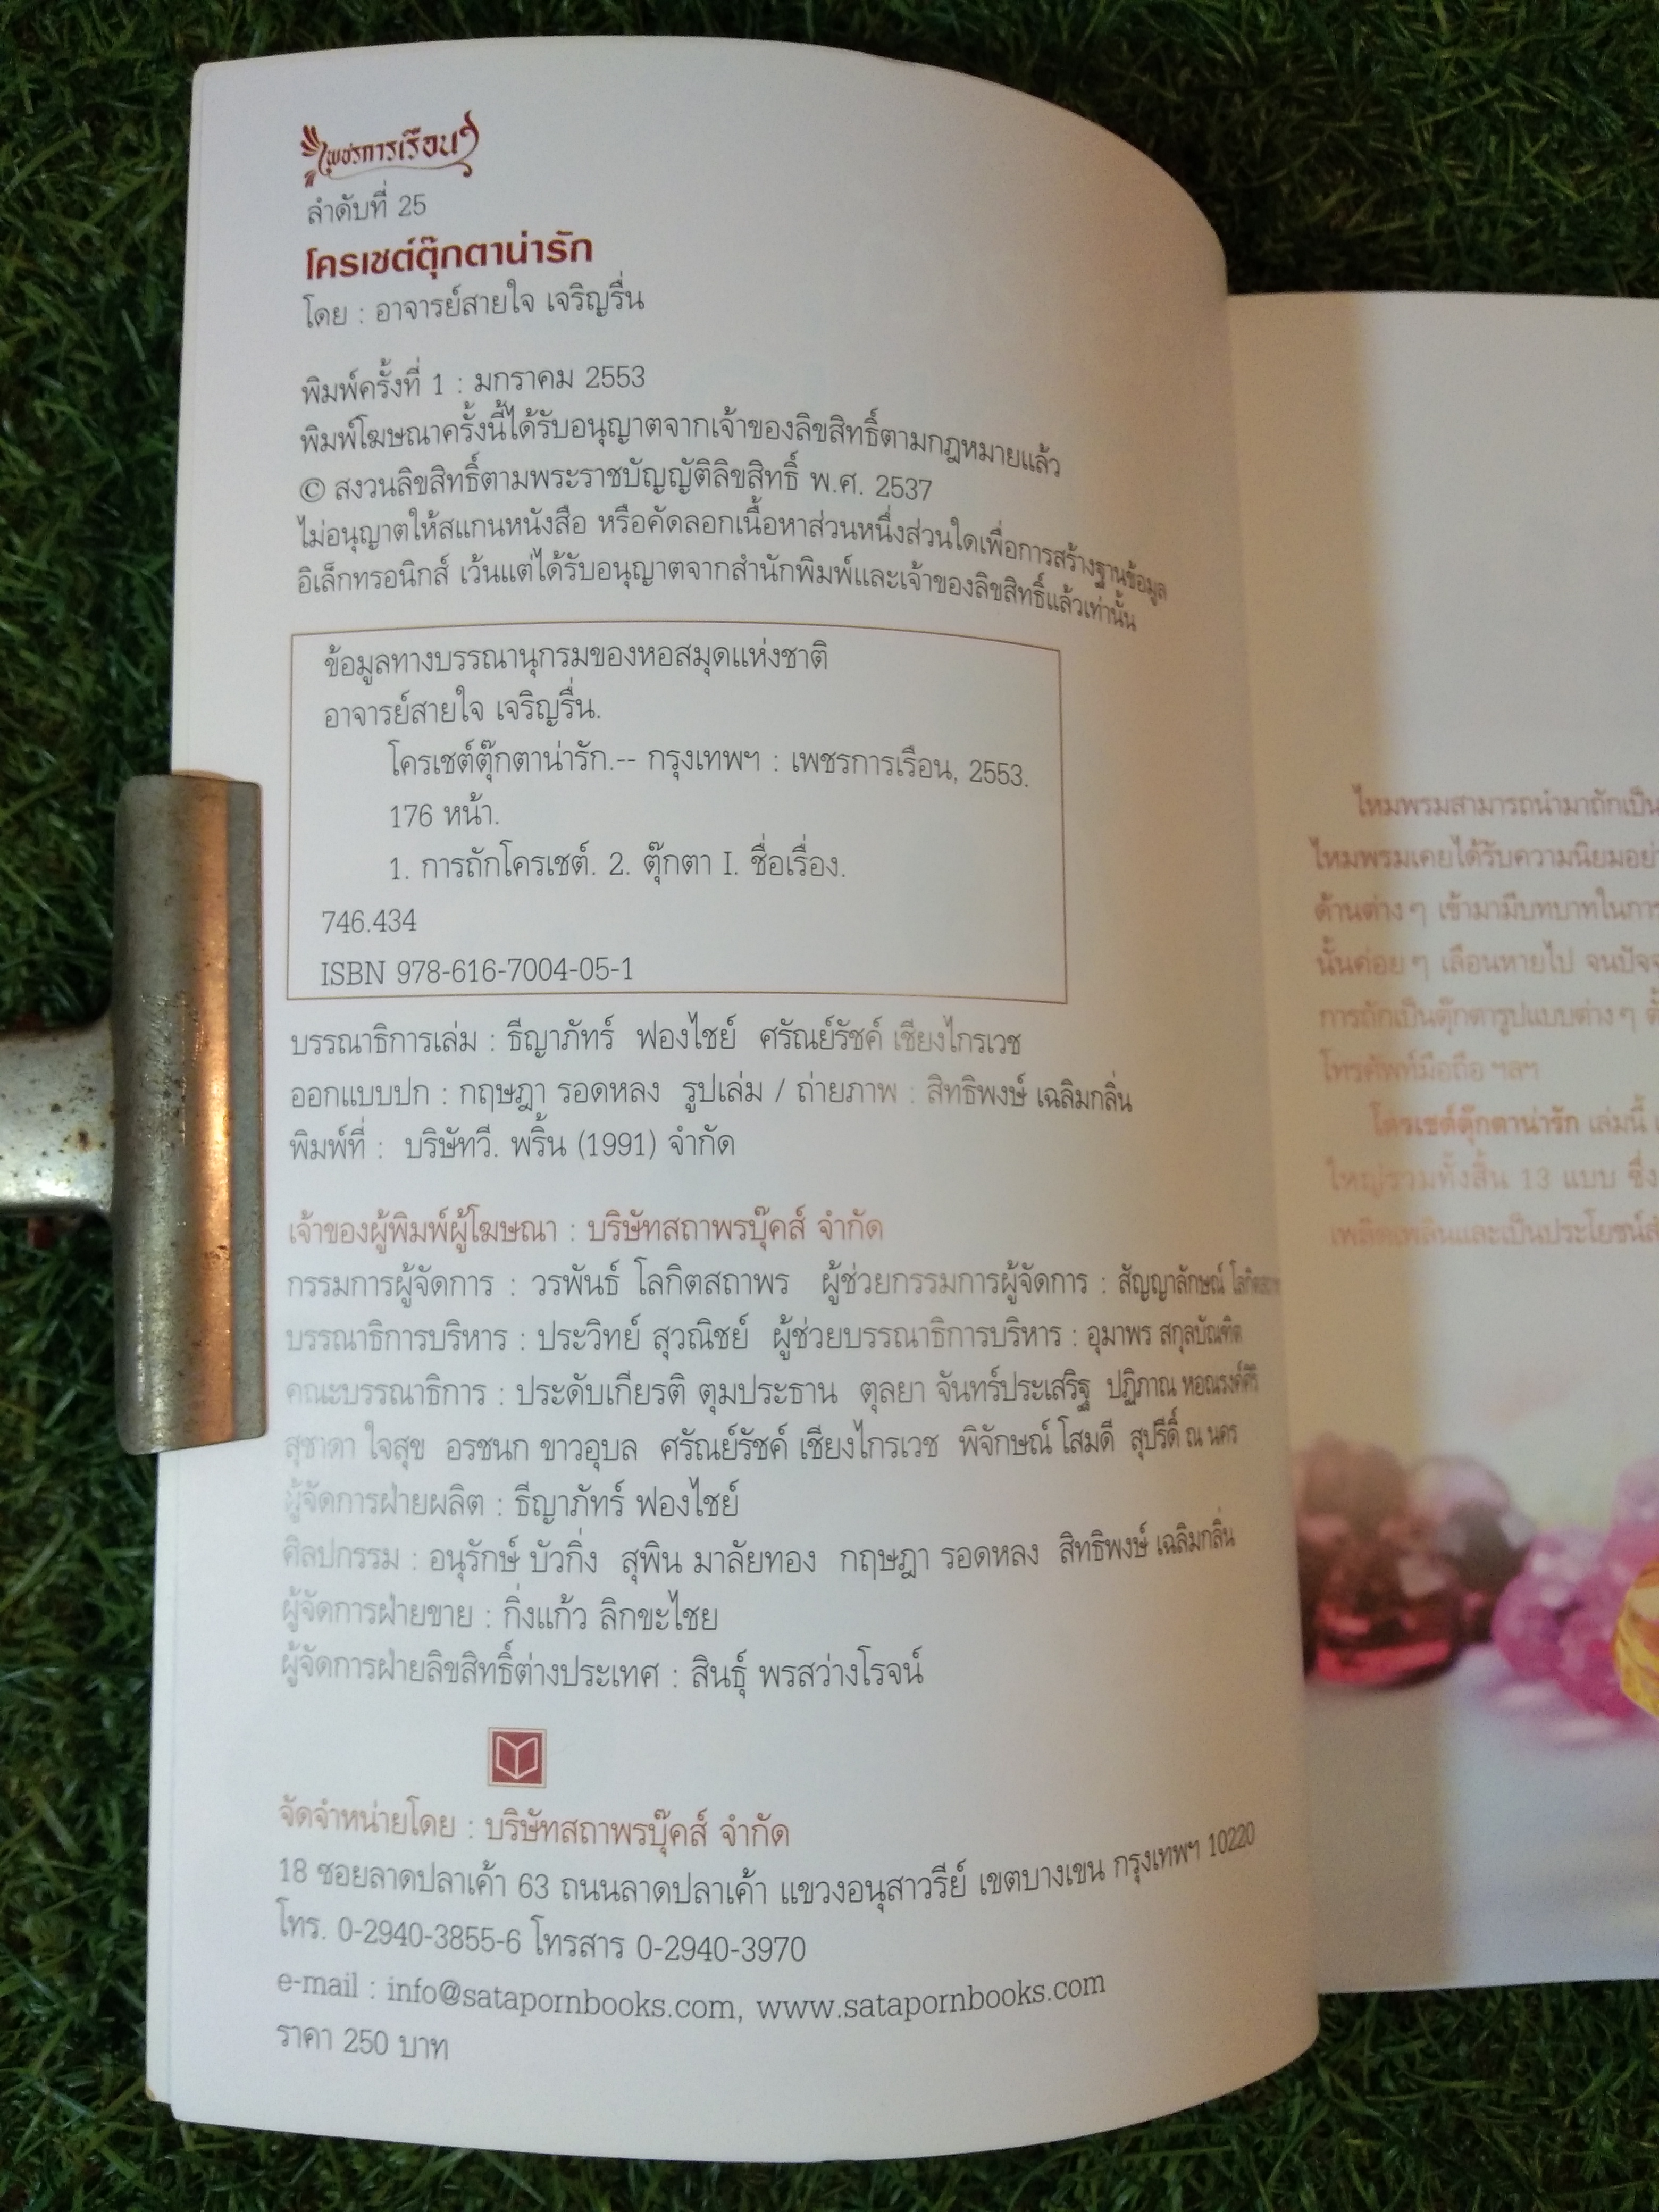 เพชรการเรือน
ลำดับที่ 25
โครเชต์ตุ๊กตาน่ารัก
โดย : อาจารย์สายใจ เจริญรื่น
พิมพ์ครั้งที่ 1 : มกราคม 2553
พิมพ์โฆษณาครั้งนี้ได้รับอนุญาตจากเจ้าของลิขสิทธิ์ตามกฎหมายแล้ว
© สงวนลิขสิทธิ์ตามพระราชบัญญัติลิขสิทธิ์ พ.ศ. 2537
ไม่อนุญาตให้สแกนหนังสือ หรือคัดลอกเนื้อหาส่วนหนึ่งส่วนใดเพื่อการสร้างฐานข้อมูล
อิเล็กทรอนิกส์ เว้นแต่ได้รับอนุญาตจากสำนักพิมพ์และเจ้าของลิขสิทธิ์แล้วเท่านั้น
ข้อมูลทางบรรณานุกรมของหอสมุดแห่งชาติ
อาจารย์สายใจ เจริญรื่น.
โครเชต์ตุ๊กตาน่ารัก.-- กรุงเทพฯ : เพชรการเรือน, 2553.
176 หน้า.
1. การถักโครเชต์. 2. ตุ๊กตา I. ชื่อเรื่อง.
746.434
ISBN 978-616-7004-05-1
บรรณาธิการเล่ม : ธีญาภัทร์ ฟองไชย์ ศรัณย์รัชค์ เชียงไกรเวช
ออกแบบปก : กฤษฎา รอดหลง รูปเล่ม / ถ่ายภาพ : สิทธิพงษ์ เฉลิมกลิ่น
พิมพ์ที่ : บริษัทวี. พริ้น (1991) จำกัด
เจ้าของผู้พิมพ์ผู้โฆษณา : บริษัทสถาพรบุ๊คส์ จำกัด
กรรมการผู้จัดการ : วรพันธ์ โลกิตสถาพร ผู้ช่วยกรรมการผู้จัดการ : สัญญาลักษณ์
บรรณาธิการบริหาร : ประวิทย์ สุวณิชย์ ผู้ช่วยบรรณาธิการบริหาร : อุมาพร สกุลบัณฑิต
คณะบรรณาธิการ : ประดับเกียรติ ตุมประธาน ตุลยา จันทร์ประเสริฐ ปฏิภาณ
สุชาดา ใจสุข อรชนก ขาวอุบล ศรัณย์รัชค์ เชียงไกรเวช พิจักษณ์ โสมดี สุปรีดิ์ ณ นคร
ผู้จัดการฝ่ายผลิต : ธีญาภัทร์ ฟองไชย์
ศิลปกรรม : อนุรักษ์ บัวกิ่ง สุพิน มาลัยทอง กฤษฎา รอดหลง สิทธิพงษ์ เฉลิมกลิ่น
ผู้จัดการฝ่ายขาย : กิ่งแก้ว ลิกขะไชย
ผู้จัดการฝ่ายลิขสิทธิ์ต่างประเทศ : สินธุ์ พรสว่างโรจน์
จัดจำหน่ายโดย : บริษัทสถาพรบุ๊คส์ จำกัด
18 ซอยลาดปลาเค้า 63 ถนนลาดปลาเค้า แขวงอนุสาวรีย์ เขตบางเขน กรุงเทพฯ 10220
โทร. 0-2940-3855-6 โทรสาร 0-2940-3970
e-mail : info@satapornbooks.com, www.satapornbooks.com
ราคา 250 บาท
ไหมพรมสามารถนำมาถักเป็น
ไหมพรมเคยได้รับความนิยมอย่า
ด้านต่างๆ เข้ามามีบทบาทในการ
นั้นค่อยๆ เลือนหายไป จนปัจจ
การถักเป็นตุ๊กตารูปแบบต่างๆ
โทรศัพท์มือถือ ฯลฯ
โครเชต์ตุ๊กตาน่ารัก เล่มนี้
ใหญ่รวมทั้งสิ้น 13 แบบ ซึ่ง
เพลิดเพลินและเป็นประโยชน์